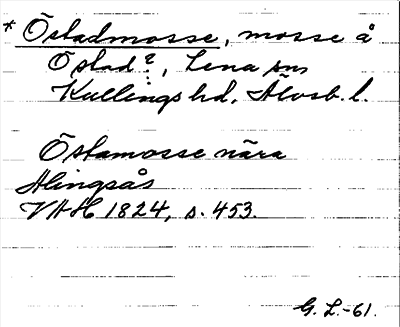 * Östadmosse, mosse å
Östad?, Lena sn
Kullings hd, Älvsb. l.
Östamosse nära
Alingsås
VAH 1824, s. 453.
G. L.-61.